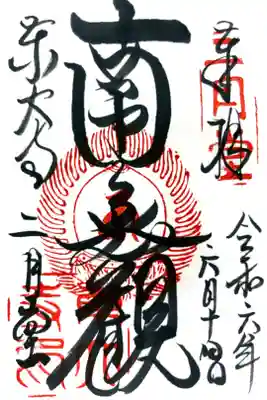 奉拝
令和六年
六月十四日
南無観
東大寺
二月堂